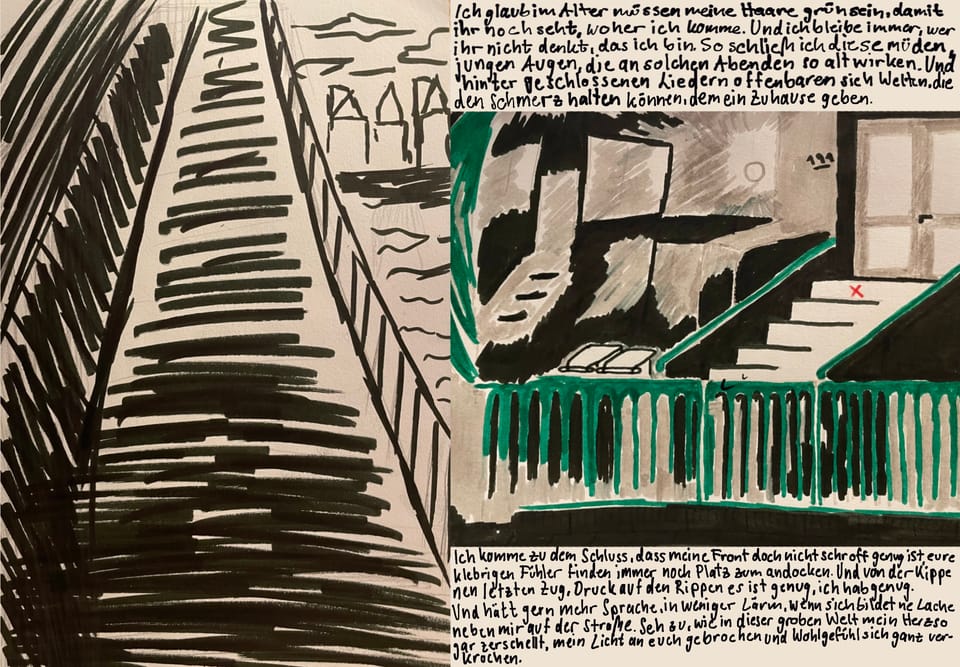 Ich glaub im Alter müssen meine Haare grün sein, damit
ihr noch seht, woher ich komme. Und ich bleibe immer, wer
ihr nicht denkt, das ich bin. So schließ ich diese müden,
jungen Augen, die an solchen Abenden so alt wirken. Und
hinter geschlossenen Liedern offenbaren sich Welten, die
den Schmerz halten können, dem ein Zuhause geben.
111
Ich komme zu dem Schluss, dass meine Front doch nicht schroff genug ist eure
klebrigen Fühler finden immer noch Platz zum andocken. Und von der Kippe
nen letzten Zug, Druck auf den Rippen es ist genug, ich hab genug.
Und hätt gern mehr Sprache, in weniger Lärm, wenn sich bildet ne Lache
neben mir auf der Straße. Seh zu, wie in dieser groben Welt mein Herz so
gar zerschellt, mein Licht an euch gebrochen und Wohlgefühl sich ganz ver-
krochen.